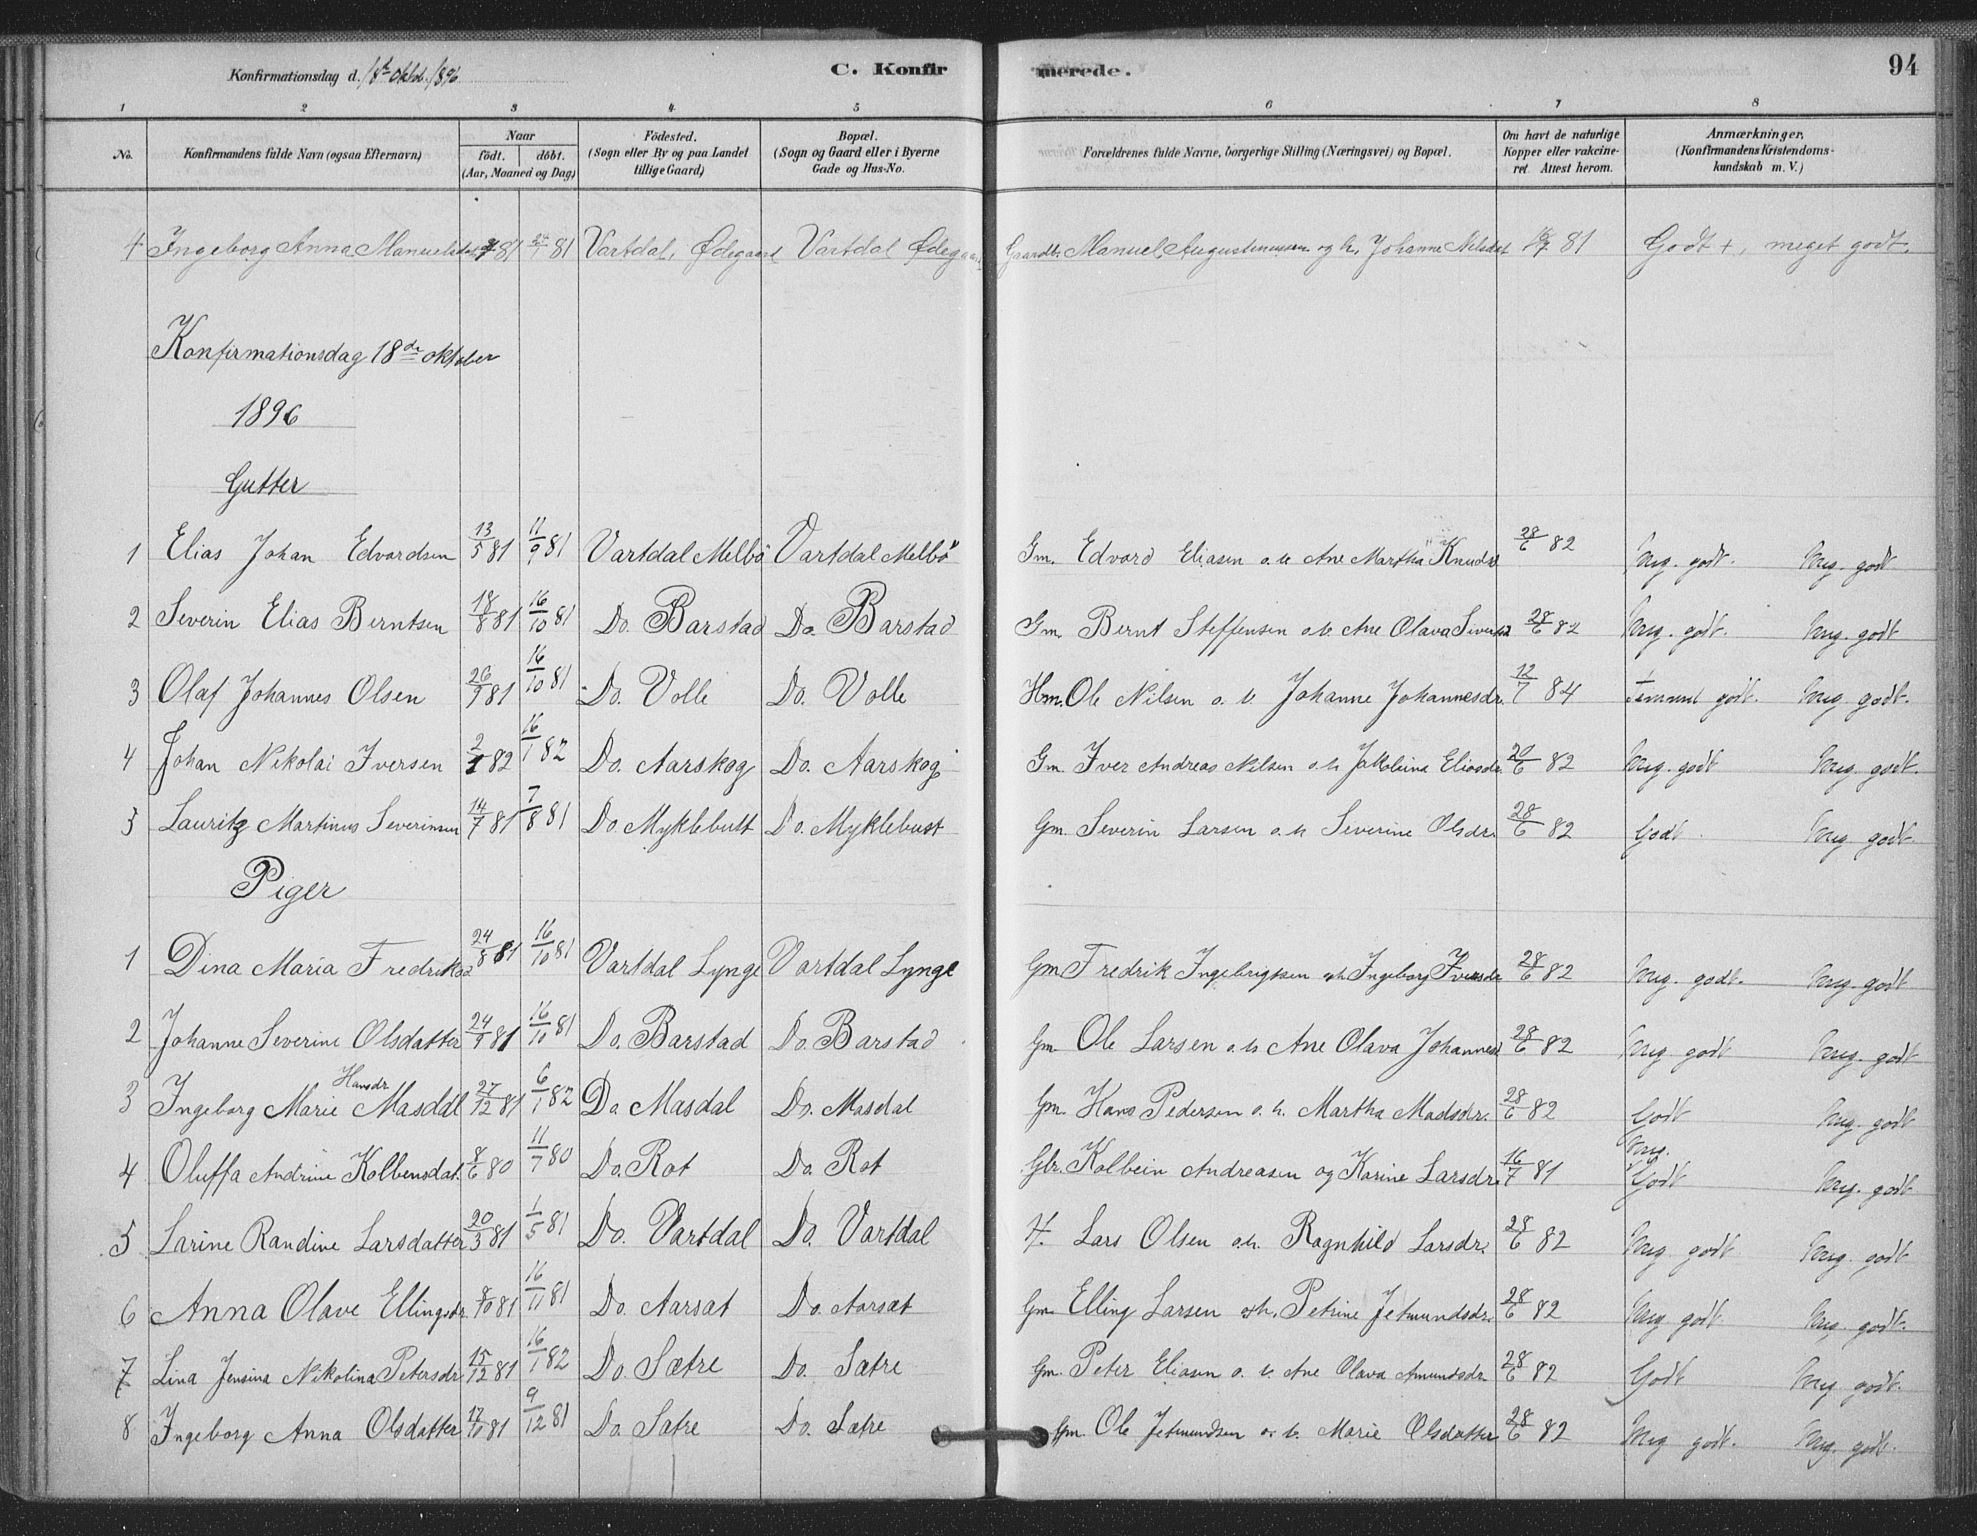 Konfirmationsdag d. 18de Oktob. 1896 C. Konfirmerede. 94
1 2 3 4 5 6 7 8
No. Konfirmandens fulde Navn (ogsaa Efternavn) Naar födt. döbt. (Aar, Maaned og Dag) Födested. (Sogn eller By og paa Landet tillige Gaard) Bopæl. (Sogn og Gaard eller i Byerne Gade og Hus-No. Forældrenes fulde Navne, borgerlige Stilling (Næringsvei) og Bopæl. Om havt de naturlige Kopper eller vakcineret. Attest herom. Anmærkninger, (Konfirmandens Kristendomskundskab m. V.)
4 Ingeborg Anna Manuelsdat 81 24/1 81 Vartdal, Ødegaard Vartdal Ødegaard Gaardb. Manuel Augustinussen og h. Johanne Nilsdat 81 Godt +, meget godt.
Konfirmationsdag 18de oktober
1896
Gutter
1 Elias Johan Edvardsen 13/5 81 11/9 81 Vartdal Melbö Vartdal Melbö Gm. Edvard Eliasen o. h. Ane Martha Knudsd 28/6 82 Mg. godt. Mg. godt
2 Severin Elias Berntsen 18/8 81 16/10 81 Do. Barstad Do. Barstad Gm. Bernt Steffensen o. h. Ane Olava Sivertsd 28/6 82 Mg. godt. Mg. godt
3 Olaf Johannes Olsen 26/9 81 16/10 81 Do. Volle Do. Volle Hm. Ole Nilsen o. h. Johanne Johannesdr. 12/7 84 Temmel godt. Mg. godt.
4 Johan Nikolai Iversen 2/1 82 16/1 82 Do. Aarskog Do. Aarskog Gm. Iver Andreas Nilsen o. h. Jakobina Eliasdr 20/6 82 Mg. godt Mg. godt.
5 Lauritz Martinus Severinsen 14/7 81 7/8 81 Do. Myklebust Do. Myklebust Gm. Severin Larsen o. h. Severine Olsdr. 28/6 82 Godt Mg. godt.
Piger
1 Dina Maria Fredriksd 24/8 81 16/10 81 Vartdal Lynge Vartdal Lynge Gm Fredrik Ingebrigtsen o. h. Ingeborg Iversdr 28/6 82 Mg. godt. Mg. godt
2 Johanne Severine Olsdatter 24/9 81 16/10 81 Do. Barstad Do. Barstad Gm. Ole Larsen o. h. Ane Olava Johannesd 28/6 82 Mg godt Mg. godt
3 Ingeborg Marie Hansdr Masdal 27/12 81 6/1 82 Do Masdal Do. Masdal Gm. Hans Pedersen o. h. Martha Madsdr. 28/6 82 Godt Mg. godt
4 Oluffa Andrine Kolbensdat. 8/6 80 11/7 80 Do. Rot Do. Rot Gbr. Kolbein Andreasen og Karine Larsdr. 16/7 81 Mg. Godt Mg. godt
5 Larine Randine Larsdatter 20/3 81 1/5 81 Do. Vartdal Do. Vartdal Lars Olsen o. h. Ragnhild Larsdr. 28/6 82 Mg godt Mg. godt
6 Anna Olave Ellingsdr. 8/10 81 16/11 81 Do. Aarsæt Do. Aarsæt Gm. Elling Larsen o. h. Petrine Jetmundsdr. 28/6 82 Mg godt Mg. godt.
7 Lina Jensina Nikolina Petersdr 15/12 81 16/1 82 Do. Sætre Do. Sætre Gm. Peter Eliasen o. h. Ane Olava Amundsdr 28/6 82 Godt Mg godt.
8 Ingeborg Anna Olsdatter 17/10 81 9/12 81 Do. Sætre Do. Sætre Gm. Ole Jetmundsen o. h. Marie Olsdatter 28/6 82 Mg godt. Mg. godt.